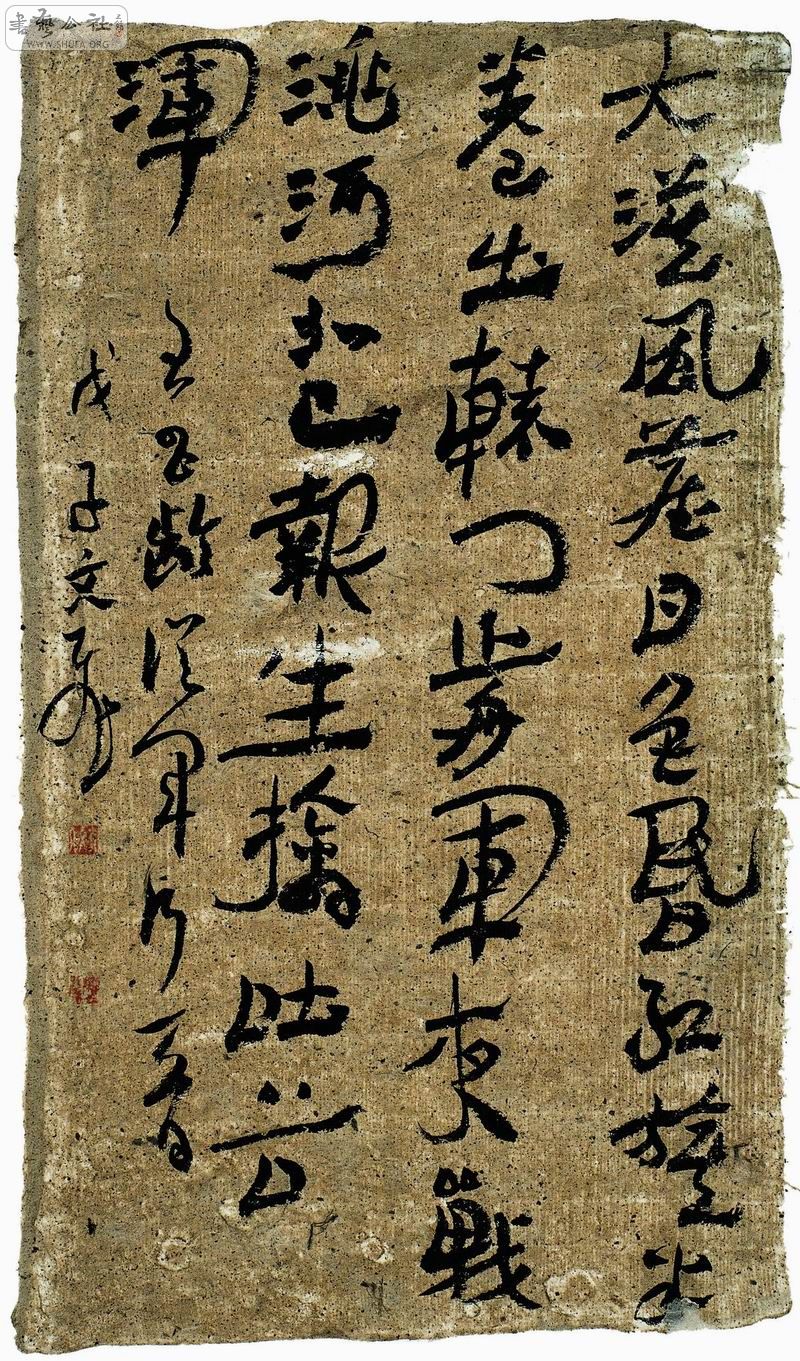 大漠風塵日色昏紅旗半
卷出轅門歬軍夜戰
洮河北已報生擒吐谷
渾
王昌齡從軍行一首
戊子文
書藝公社
WWW.SHUFA.ORG